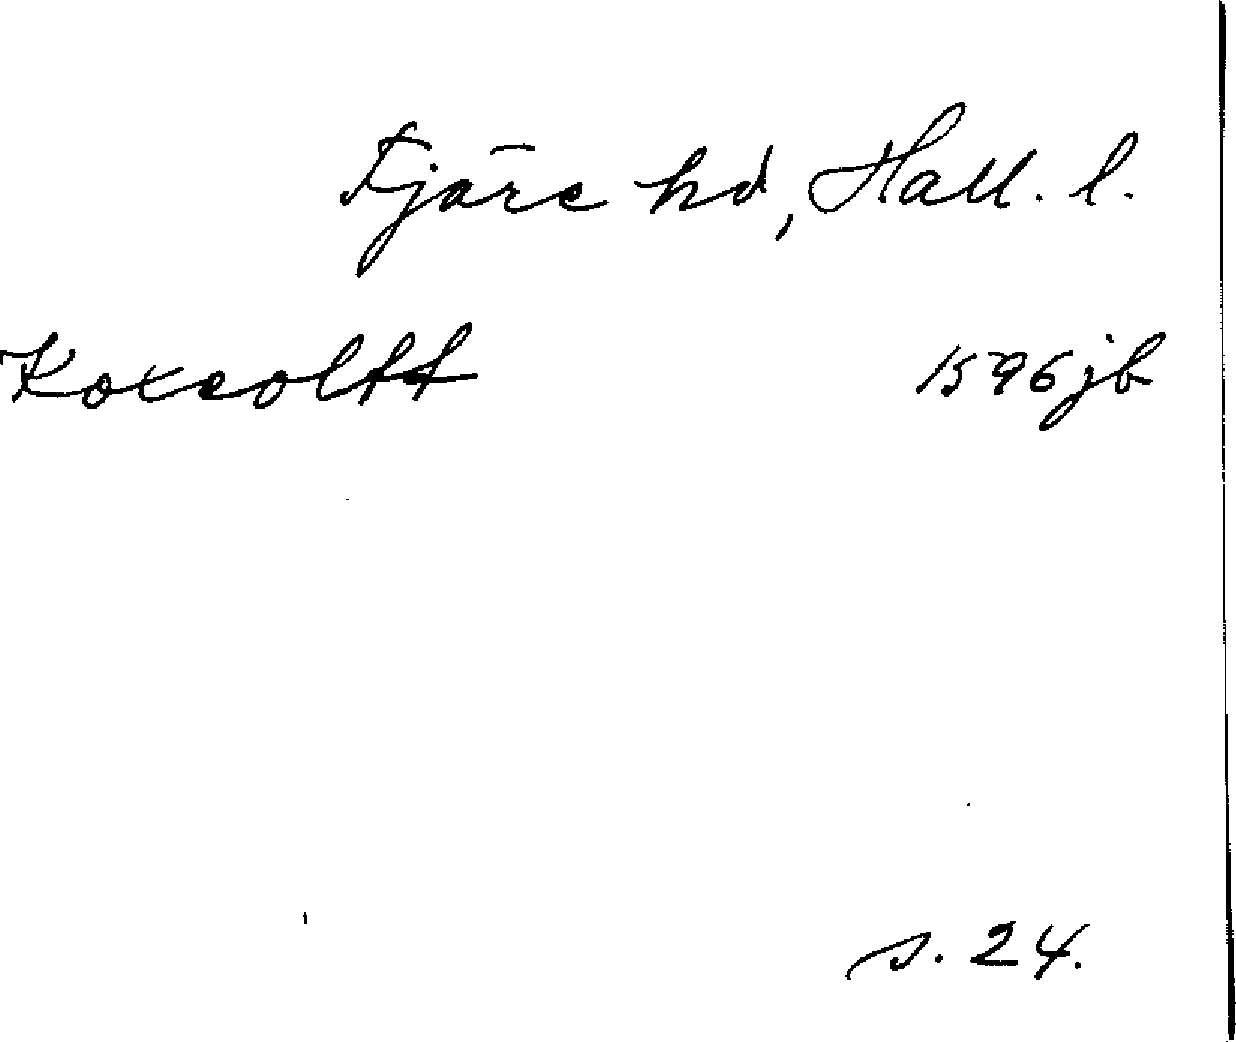 Fjäre hd, Hall. l.
Koxeoltt 1596 jb
s. 24.